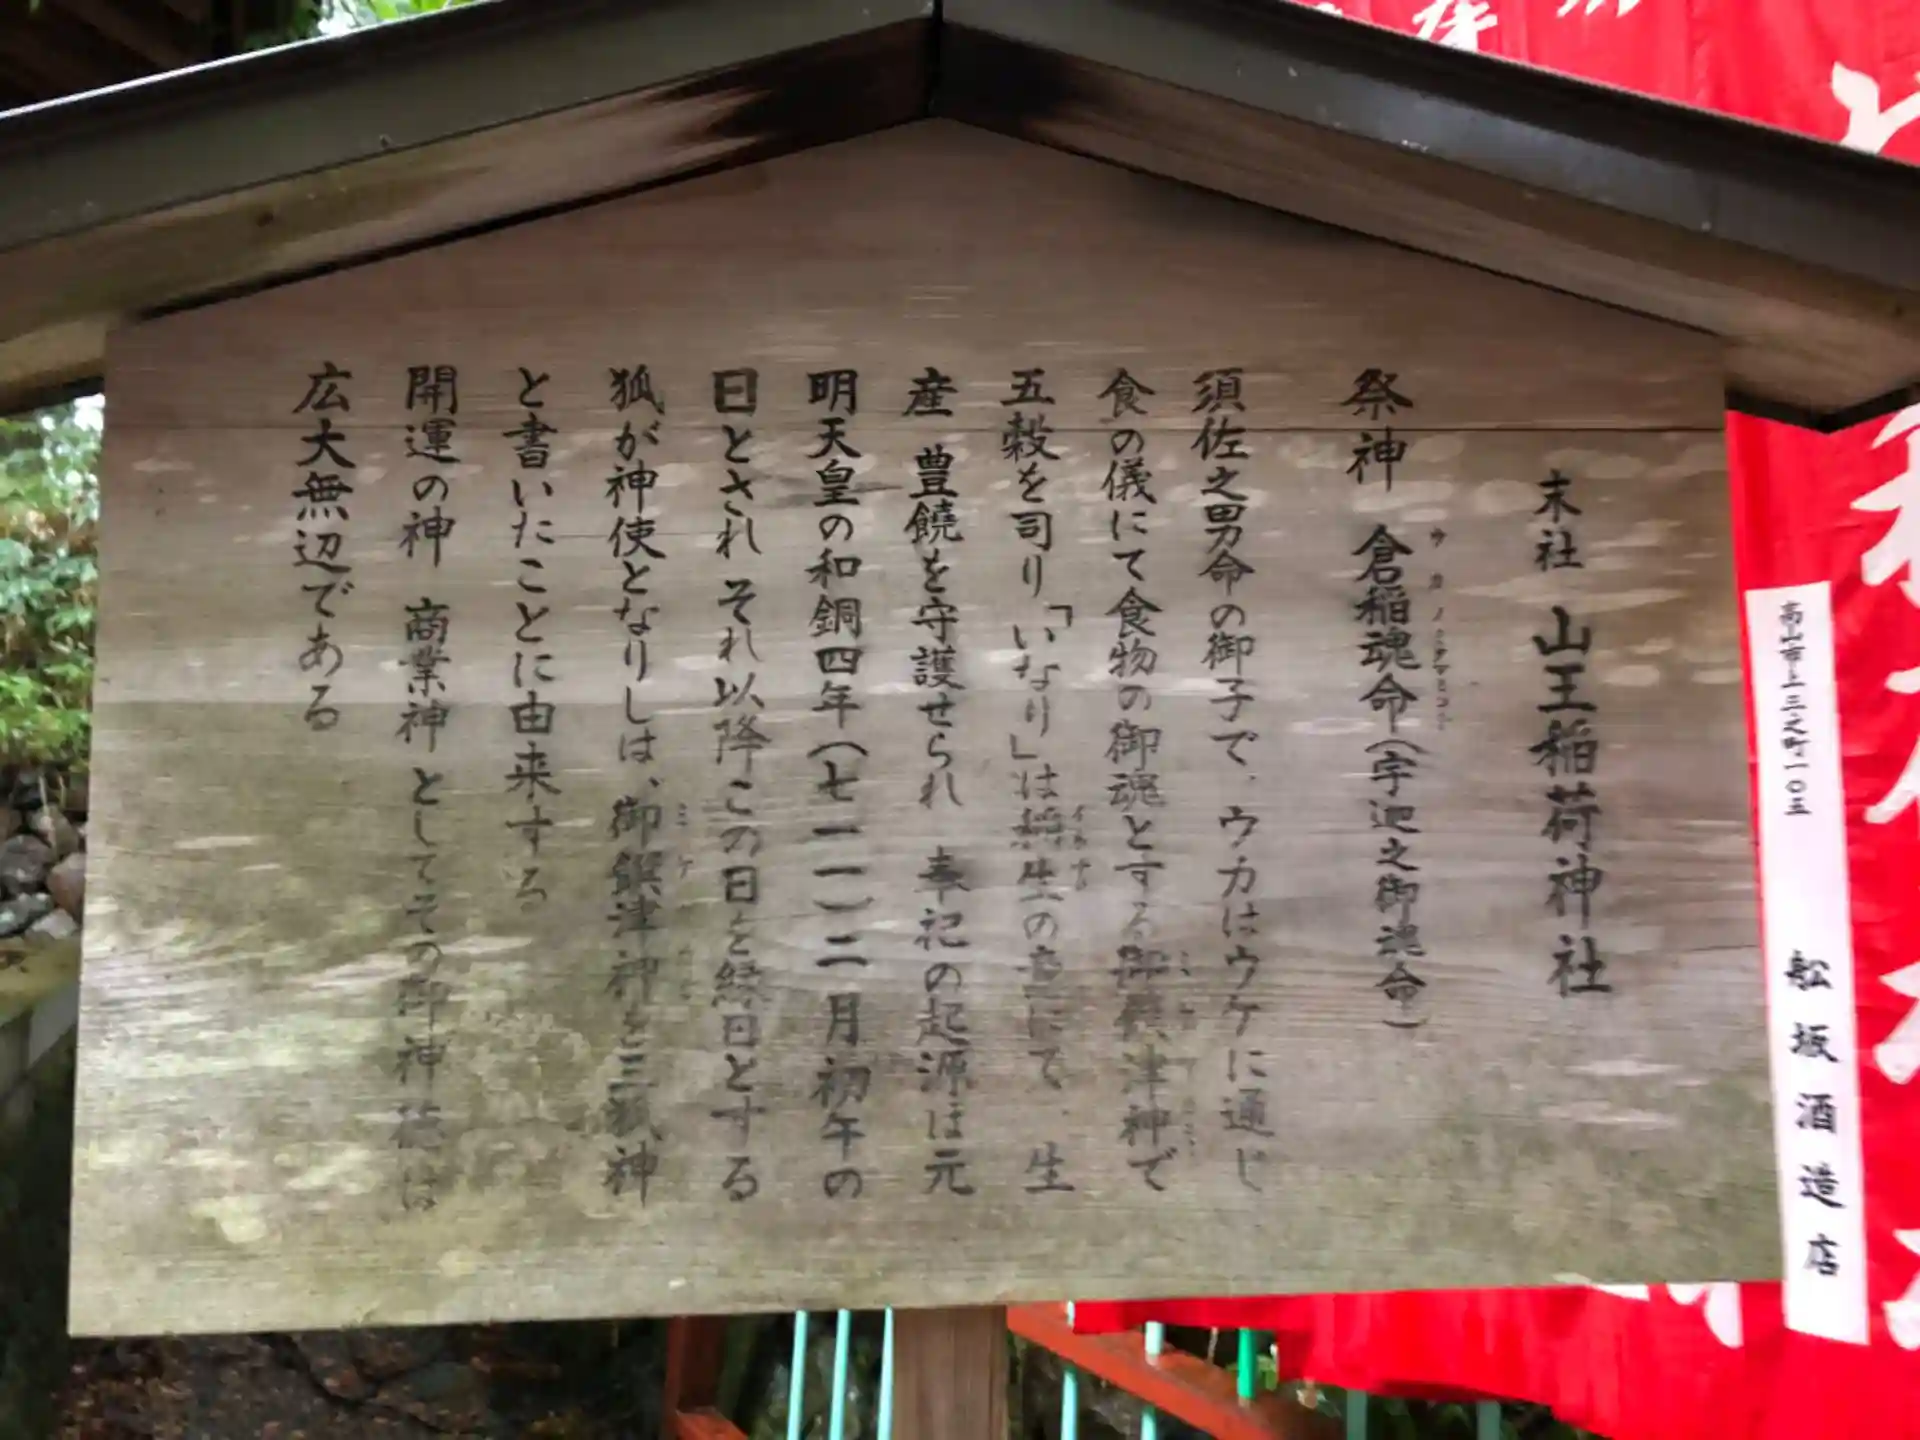 末社 山王稲荷神社
祭神 倉稲魂命(宇迦之御魂命)
ウカノミタマミコト
須佐之男命の御子で、ウカはウケに通じ
食の儀にて食物の御魂とする御饌津神で
五穀を司り「いなり」は稲生の意にて、生
イネナリ
産 豊饒を守護せられ 奉祀の起源は元
明天皇の和銅四年(七一一)二月初午の
日とされ それ以降この日を縁日とする
狐が神使となりしは、御饌津神を三狐神
ミケ
と書いたことに由来する
開運の神 商業神としてその御神徳は
広大無辺である
高山市上三之町一〇五
舩坂酒造店